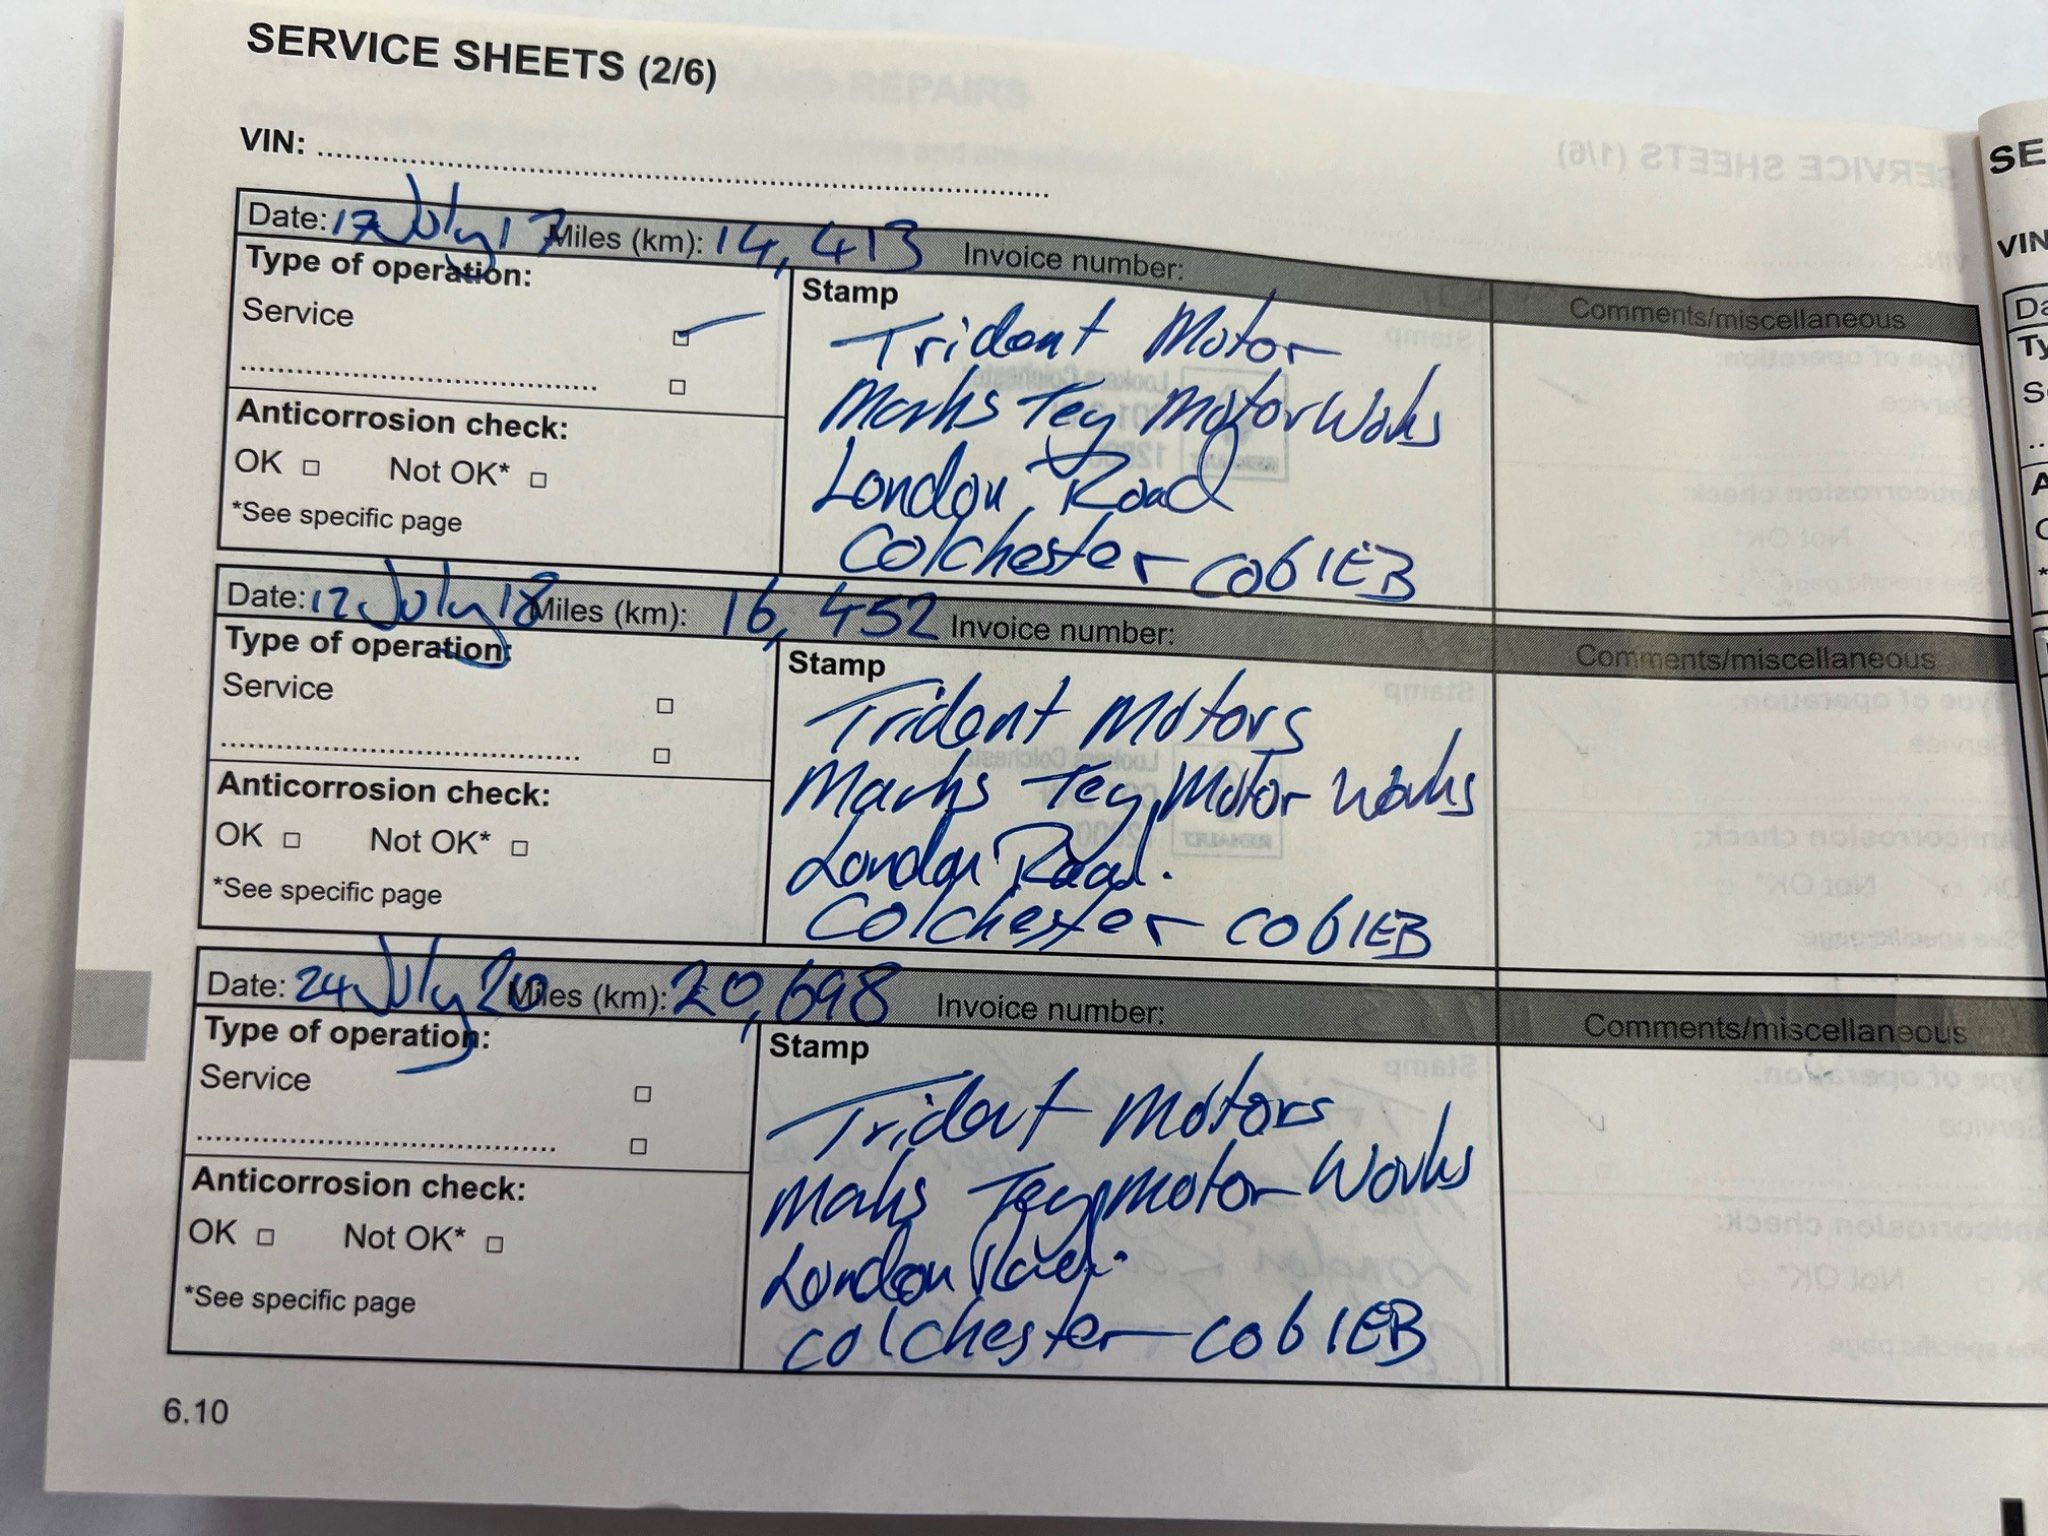 SERVICE SHEETS (2/6)
VIN: ........................................
Date: 17 July 17 Miles (km): 14,413 Invoice number:
Type of operation:
Service
Stamp
Comments/miscellaneous
Trident Motor
Marks Tey Motor Works
London Road
Colchester CO6 1EB
Anticorrosion check:
OK □ Not OK* □
*See specific page
Date: 12 July 18 Miles (km): 16,452 Invoice number:
Type of operation:
Service □
Stamp
Comments/miscellaneous
Trident Motors
Marks Tey Motor Works
London Road.
Colchester CO6 1EB
Anticorrosion check:
OK □ Not OK* □
*See specific page
Date: 24 July 20 Miles (km): 20,698 Invoice number:
Type of operation:
Service □
Stamp
Comments/miscellaneous
Trident Motors
Marks Tey Motor Works
London Road.
Colchester CO6 1EB
Anticorrosion check:
OK □ Not OK* □
*See specific page
6.10
SE
VIN